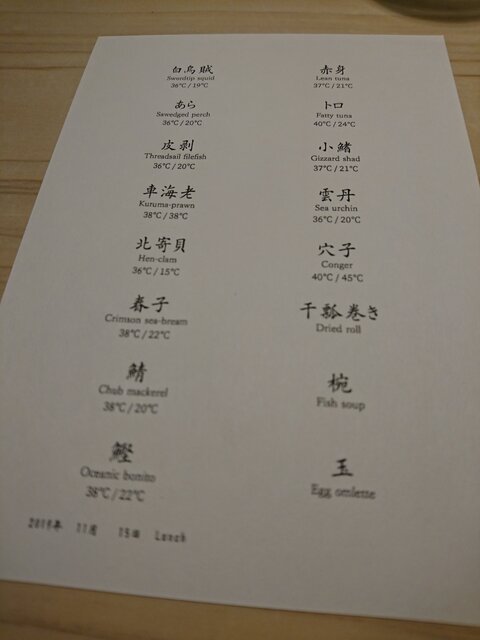 白烏賊
Swordtip squid
36℃ / 19℃
あら
Sawedged perch
36℃ / 20℃
皮剥
Threadsail filefish
36℃ / 20℃
車海老
Kuruma-prawn
38℃ / 38℃
北寄貝
Hen-clam
36℃ / 15℃
春子
Crimson sea-bream
38℃ / 22℃
鯖
Chub mackerel
38℃ / 20℃
鰹
Oceanic bonito
38℃ / 22℃
赤身
Lean tuna
37℃ / 21℃
トロ
Fatty tuna
40℃ / 24℃
小鰭
Gizzard shad
37℃ / 21℃
雲丹
Sea urchin
36℃ / 20℃
穴子
Conger
40℃ / 45℃
干瓢巻き
Dried roll
椀
Fish soup
玉
Egg omlette
11月 15日 Lunch